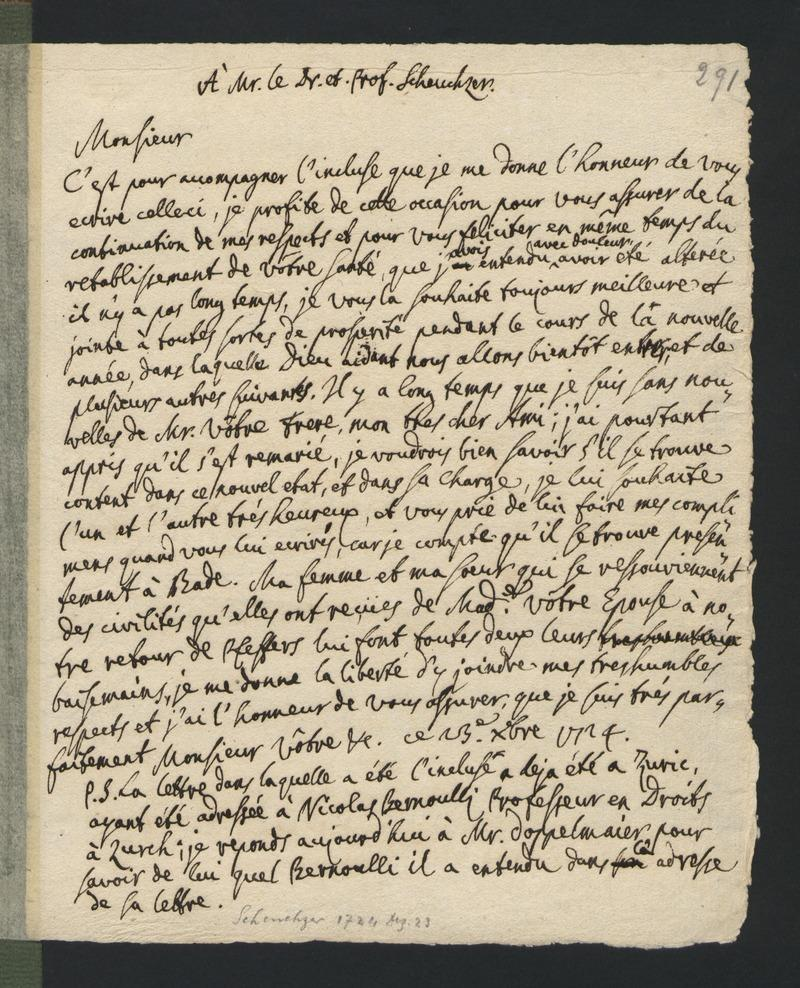 291
À Mr. le Dr. et. Prof. Scheuchzer.
Monsieur
C'est pour accompagner l'incluse que je me donne l'honneur de vous
ecrire celleci, je profite de cette occasion pour vous assurer de la
continuation de mes respects et pour vous feliciter en même temps du
retablissement de vôtre santé, que j'avois entendu avec douleur avoir été alterée
il n'y a pas long temps, je vous la souhaite toujours meilleure et
jointe à toutes sortes de prosperité pendant le cours de la nouvelle
année, dans laquelle Dieu aidant nous allons bientôt entrer, et de
plusieurs autres suivantes. Il y a long temps que je suis sans nou„
velles de Mr. Vôtre Frere, mon tres cher Ami; j'ai pourtant
appris qu'il s'est remarié, je voudrois bien savoir s'il se trouve
content dans ce nouvel etat, et dans sa charge, je lui souhaite
l'un et l'autre trés heureux, et vous prie de lui faire mes compli„
mens quand vous lui ecrirés, car je compte qu'il se trouve presen„
tement à Bade. Ma femme et ma soeur qui se ressouviennent
des civilités qu'elles ont reçües de Mad.e Vôtre Epouse à no„
tre retour de Pfeffers lui font toutes deux leurs
baisemains, je me donne la liberté d'y joindre mes treshumbles
respects et j'ai l'honneur de vous assurer, que je suis trés par„
faitement Monsieur Vôtre &c. ce 23.e Xbre 1724.
P.S. La lettre dans laquelle a été l'incluse a deja été a Zuric,
ayant été adressée à Nicolas Bernoulli Professeur en Droits
à Zurch; je reponds aujourd'hui à Mr. Doppelmaier pour
savoir de lui quel Bernoulli il a entendu dans la adresse
de sa lettre.
Scheuchzer 1724 Dez. 23